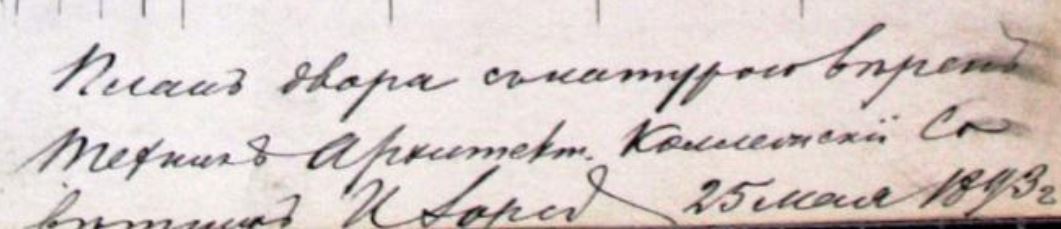 Планъ двора съ натурою вѣренъ
Техникъ Архитект. Коллежскій Со
вѣтникъ 25 мая 1893 г